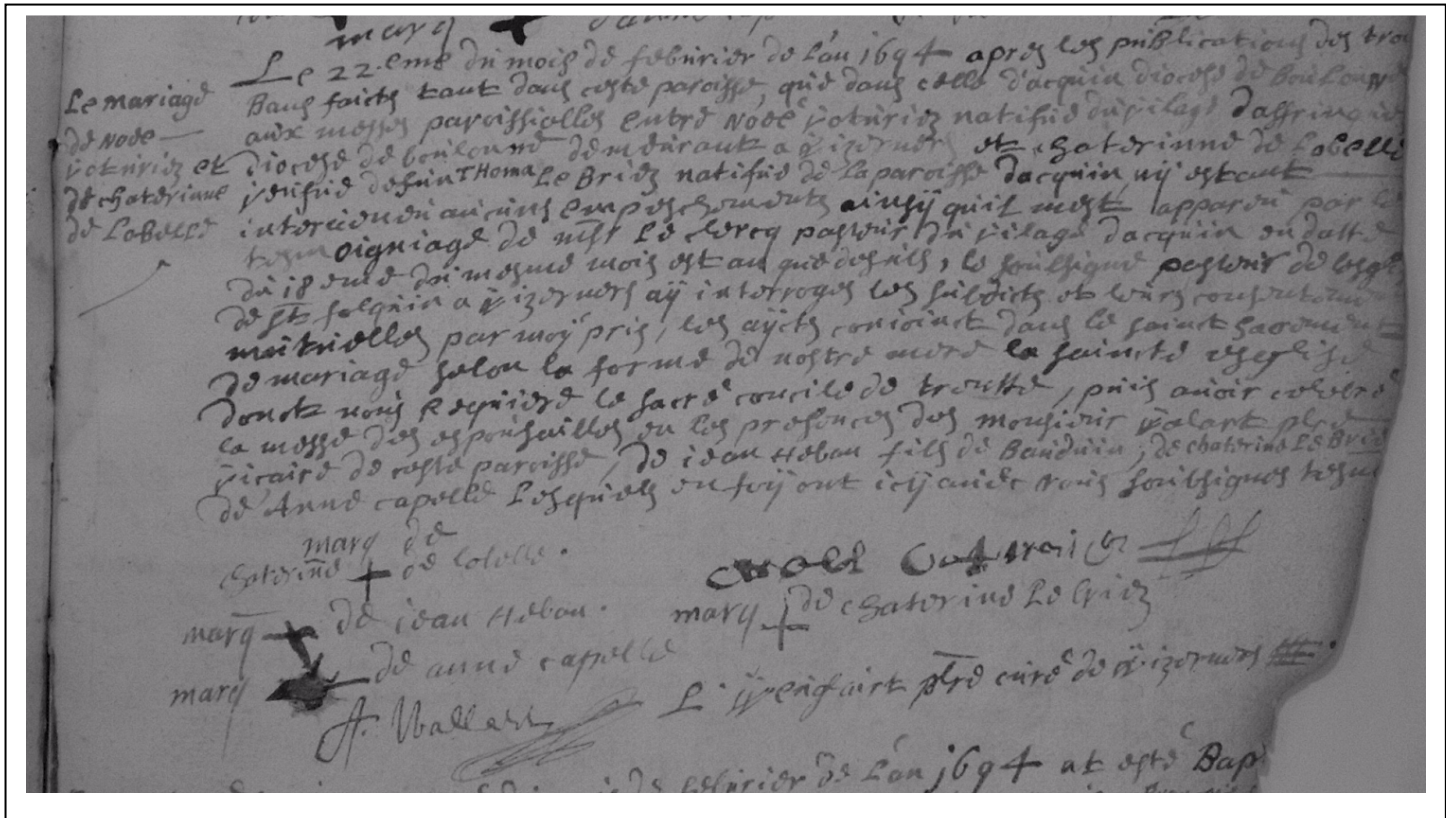 marq
Le mariage
de Noël
voturiez et
de chaterinne
de Lobelle
Le 22.eme du mois de febvrier de l'an 1694 apres les publications des tro
Bans faicts tant dans ceste paroisse, que dans celle d'acquin diocese de Boulonne
aux messes paroissialles entre Noël voturiez natifue du vilage d'affringue
diocese de boulonne demeurant a wizerners et chaterinne de Lobelle
vesfue defun Thoma Le Briez natifue de la paroisse dacquin, nÿ estant
intervenu aucuns empeschements ainsÿ quil mest apparu par le
tesmoigniage de msr Le clercq pasteur du vilage dacquin en datte
du 18 eme du mesme mois est an que desus, le soubsigné pasteur de leglis
de st folquin a wizerners aÿ interrogés les subdicts et leurs consenteme
mutuelles par moÿ pris, les aÿ conioinct dans le sainct sacrement
de mariage selon la forme de nostre mere la saincte eseglise
donct nous requiere le sacré concile de trentte, puis avoir celebré
la messe des espousailles en les presences des monsieur walart pbre
vicaire de ceste paroisse, de iean Heban fils de Bauduin, de chaterine Le Brie
de Anne capelle Lesquiels en foÿ ont icÿ avec nous soubsignes tesm
marq de
chaterinne de lobelle.
marq de iean Heban.
marq de chaterine Le briez
marq de anne capelle
A. Wallart
L. pbre curé de wizerners
de febvrier de l'an 1694 at esté Bap